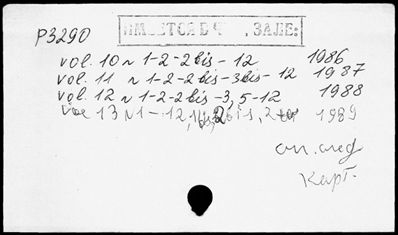 P3290
ИМЕЕТСЯ В Ч , ЗАЛЕ:
vol. 10 N 1-2-2bis - 12 1986
vol. 11 N 1-2-2bis-3bis- 12 1987
vol. 12 N 1-2-2bis-3, 5-12 1988
vol 13 N 1 - 12, 1989
см. след
карт.